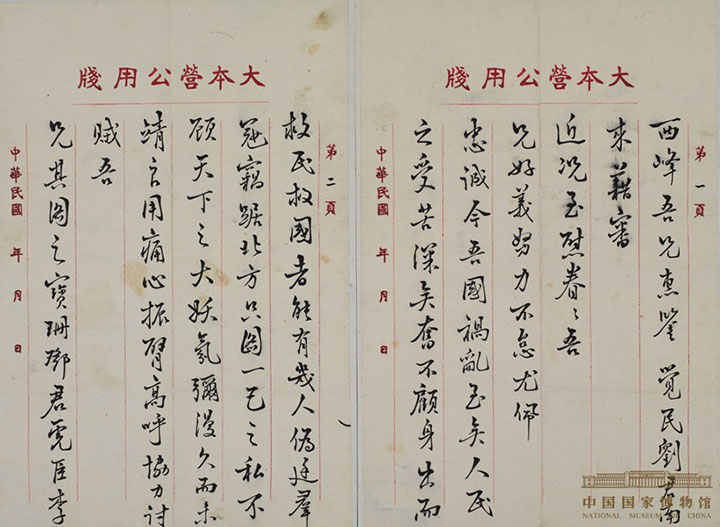 大本營公用牋
第一頁
西峰吾兄惠鑒 覺民劉君南
來藉審
近況至慰眷〻吾
兄好義努力不怠尤佩
忠誠今吾國禍亂至矣人民
之受苦深矣奮不顧身出而
中華民國 年 月 日
大本營公用牋
第二頁
救民救國者能有幾人偽廷羣
寇竊踞北方只圖一己之私不
顧天下之大妖氛彌漫久而未
靖言用痛心振臂高呼協力討
賊吾
兄其圖之寶珊鄧君虎臣李
中華民國 年 月 日
中国国家博物馆
NATIONAL MUSEUM OF CHINA